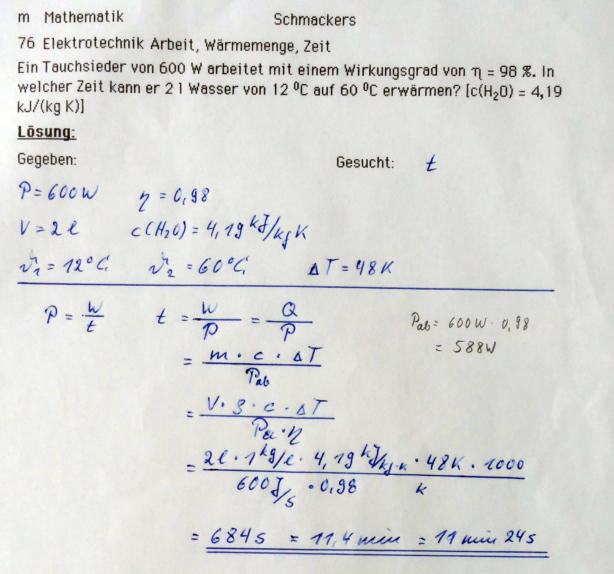 m Mathematik Schmackers
76 Elektrotechnik Arbeit, Wärmemenge, Zeit
Ein Tauchsieder von 600 W arbeitet mit einem Wirkungsgrad von η = 98 %. In
welcher Zeit kann er 2 l Wasser von 12 ⁰C auf 60 ⁰C erwärmen? [c(H2O) = 4,19
kJ/(kg K)]
Lösung:
Gegeben: Gesucht: t
P = 600 W η = 0,98
V = 2 l c(H₂O) = 4,19 kJ/kg K
ϑ₁ = 12°C ϑ₂ = 60°C ΔT = 48 K
P = W/t t = W/P = Q/P Pab = 600W · 0,98
= m · c · ΔT / Pab = 588W
= V · ρ · c · ΔT / Pzu · η
= 2l · 1 kg/l · 4,19 kJ/kg·K · 48K · 1000 / 600 J/s · 0,98 k
= 684 s = 11,4 min = 11 min 24 s